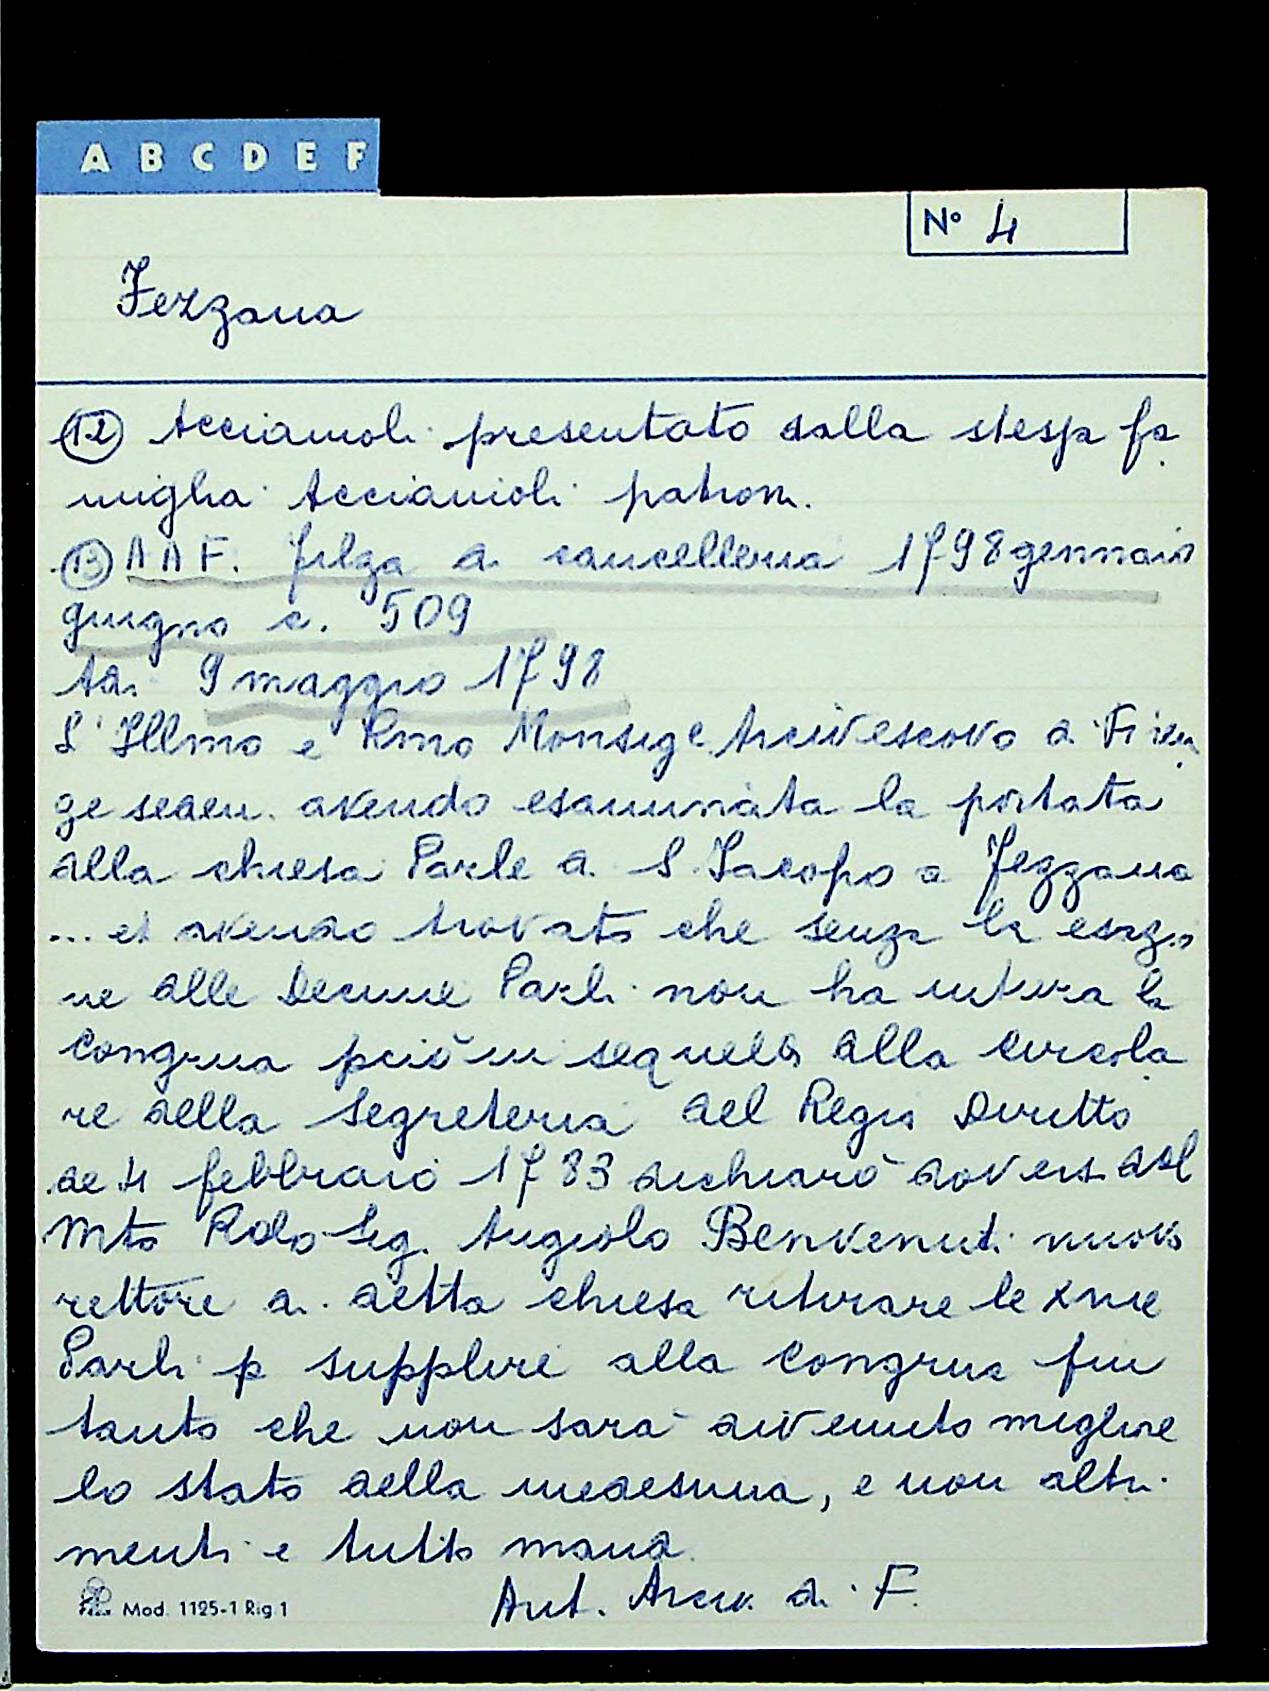 A B C D E F
N° 4
Fezzana
(12) Acciaiuoli presentato dalla stessa fa
miglia Acciaiuoli patroni.
(13) A A F. Filza di cancelleria 1798 gennaio
giugno c. 509
Adi 9 maggio 1798
L'Illmo e Rmo Monsig e Arcivescovo di Firen
ze avendo esaminata la portata
della chiesa Parle di S. Jacopo a Fezzana
... et avendo trovato che senza la esazio
ne delle Decime Parli non ha intera la
congrua perciò in sequela della circola
re della Segreteria del Regio Diritto
de 4 febbraio 1783 dichiarò doversi dal
Mto Rdo Sig. Angiolo Benvenuti nuovo
rettore di detta chiesa ritirare le Xme
Parli p supplire alla congrua fin
tanto che non sarà divenuto migliore
lo stato della medesima, e non altri
menti e tutto manda
Ant. Arciv. di F.
Mod. 1125-1 Rig 1